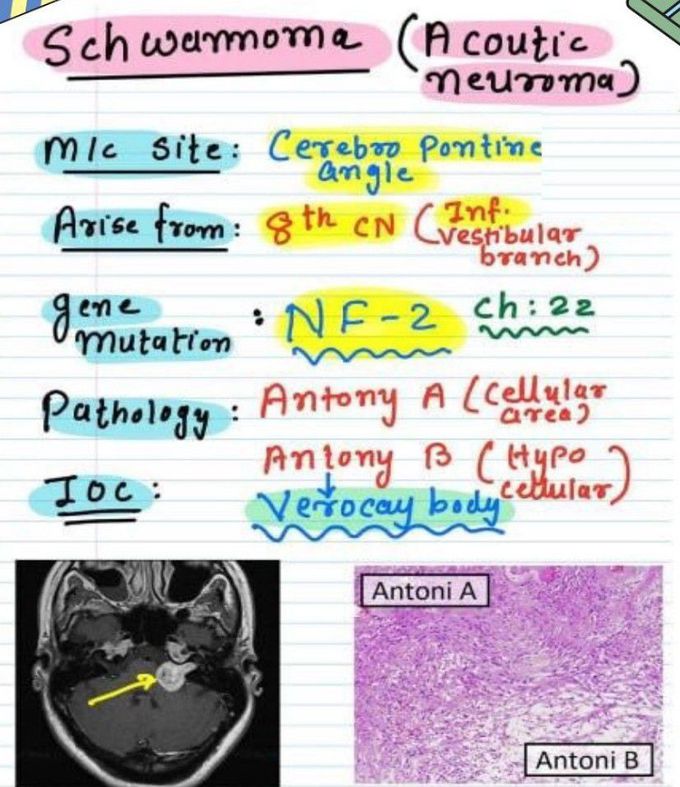 Schwannoma (Acoutic
neuroma)
M/C Site: Cerebro Pontine
angle
Arise from: 8th CN (Inf.
vestibular
branch)
gene
mutation : NF-2 Ch: 22
Pathology: Antony A (Cellular
area)
Antony B (Hypo
cellular)
IOC:
Verocay body
Antoni A
Antoni B